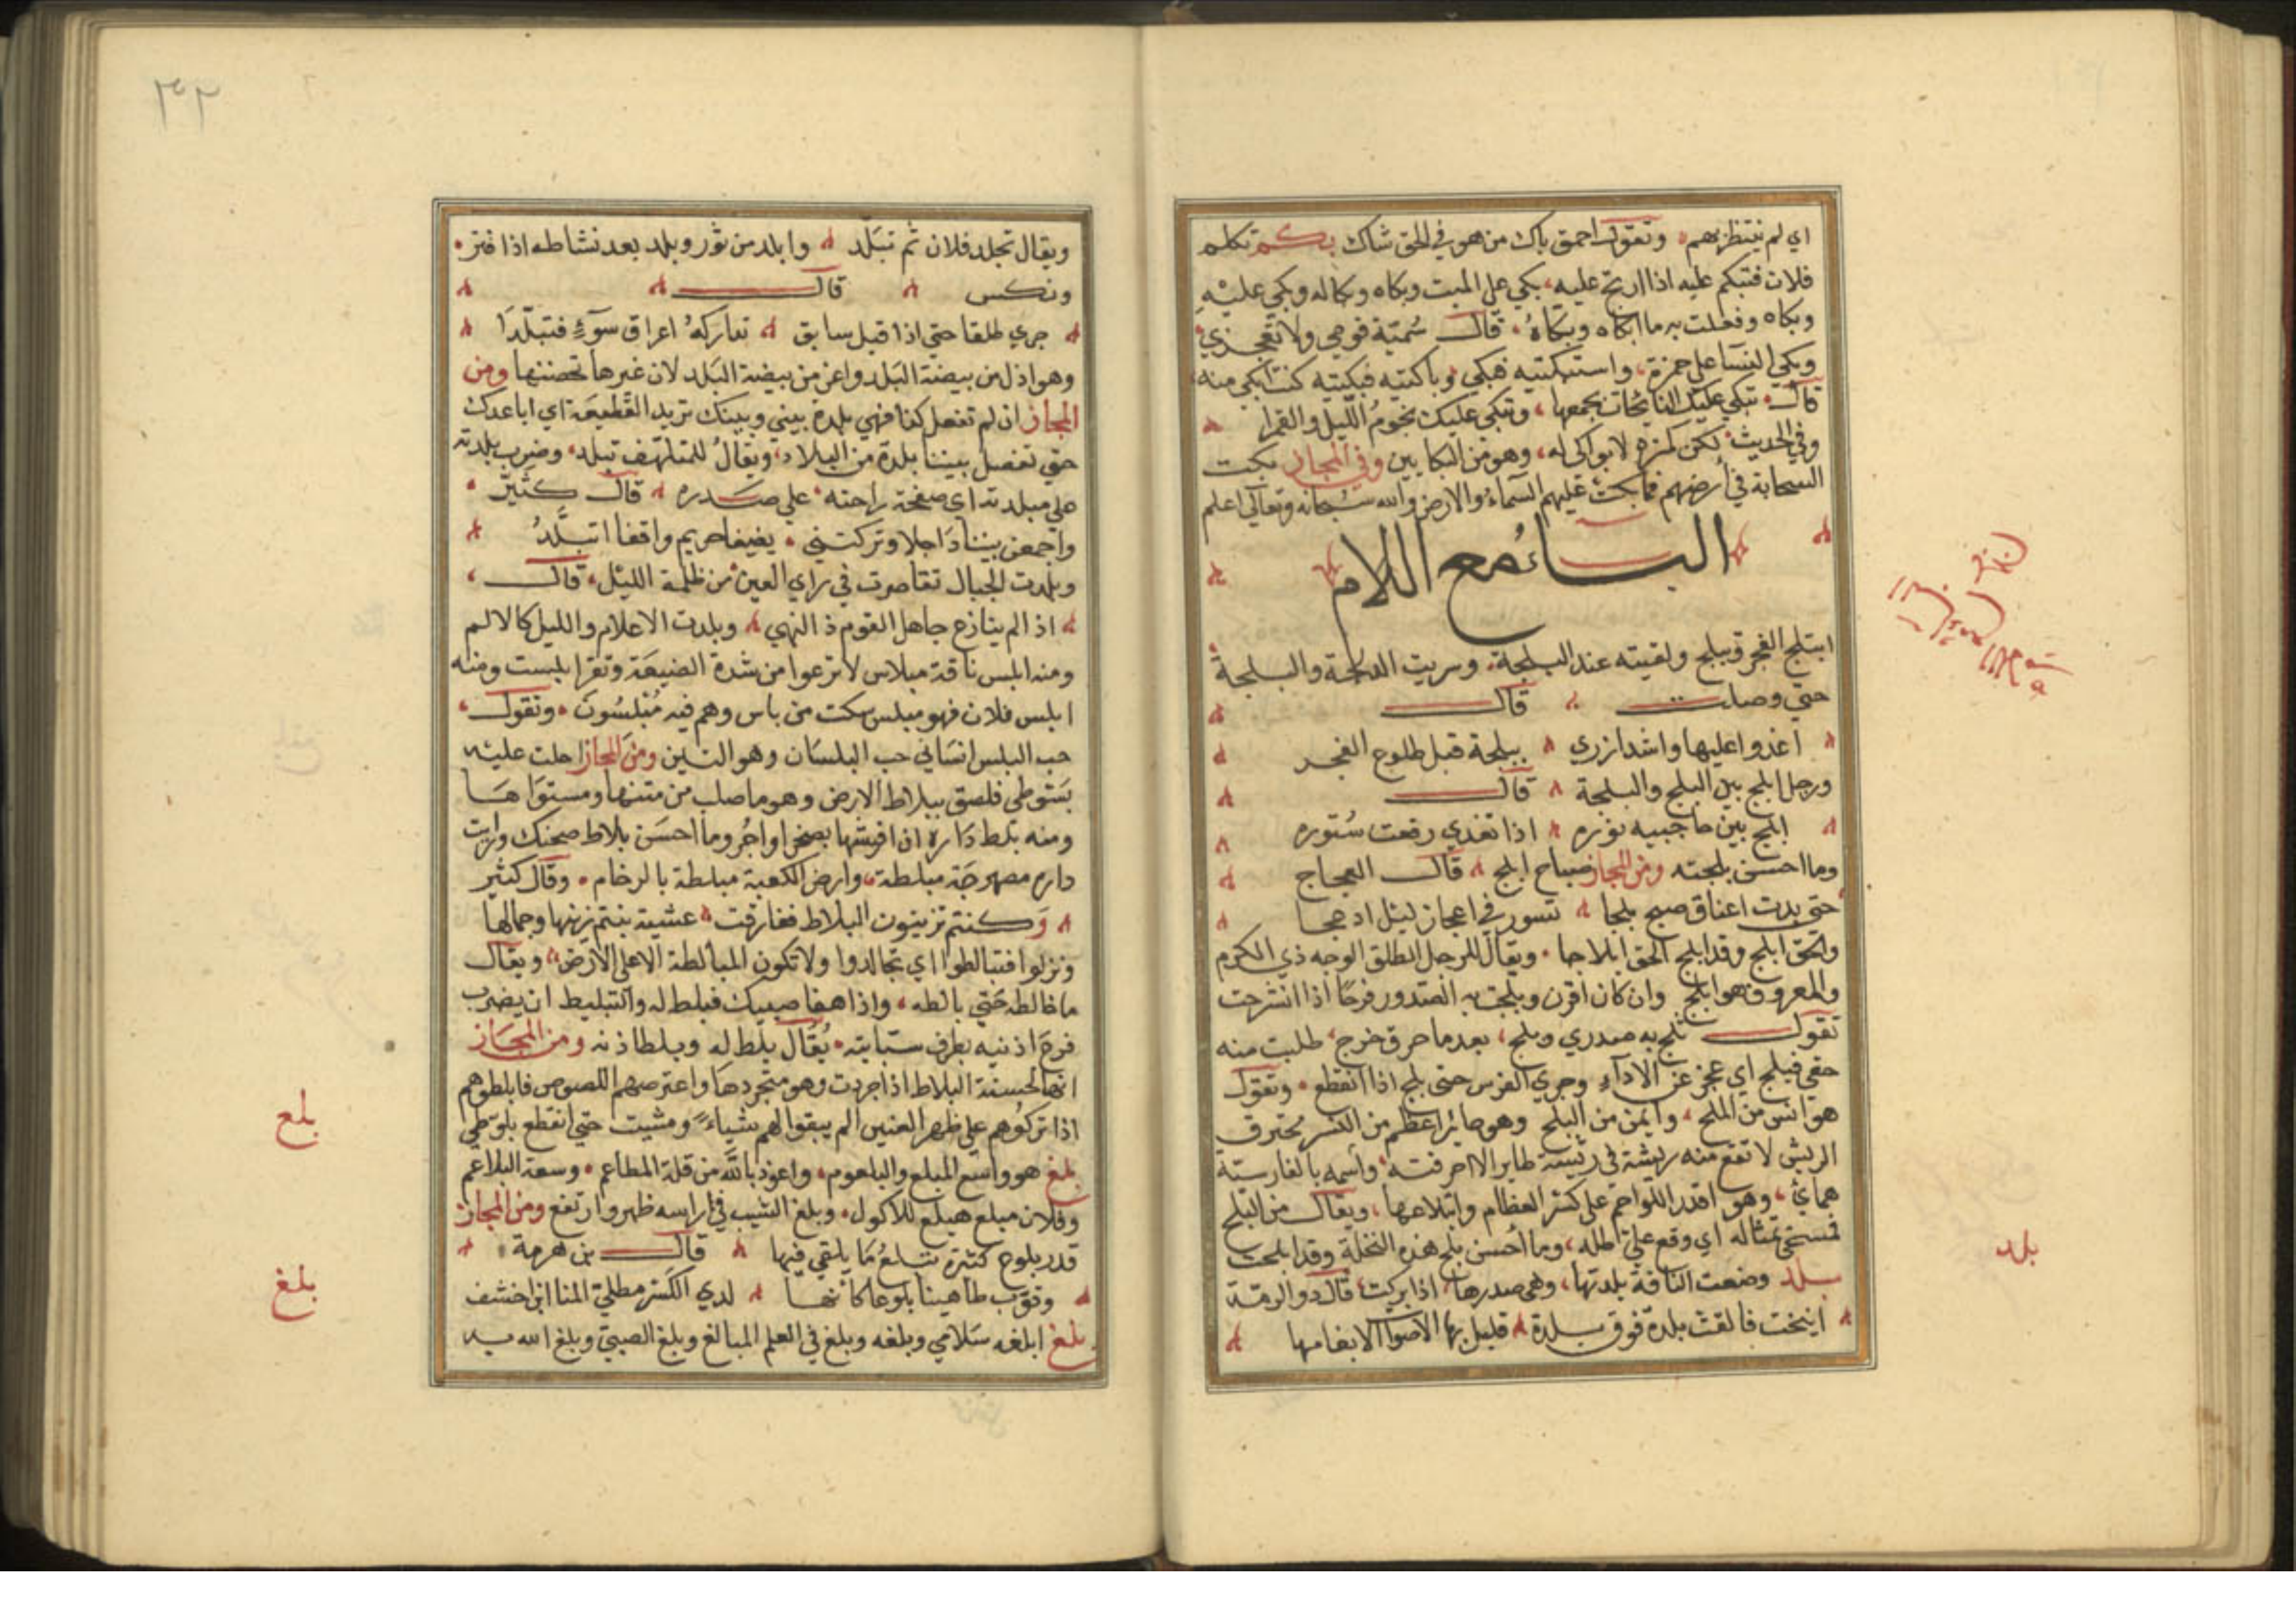 اي لم ينتظربهم وتقول احمق باك من هو في الحق شاك بكم تكلم
فلان فتبكم عليه اذا ارتج عليه بكي علي الميت وبكاه وبكاله وبكي عليه
وبكاه وفعلت به ما ابكاه وبكاهُ قال سُميّة قومي ولا تعجزي
وبكي النسا علي حمزة واستبكيته فبكي وباكيته فبكيته كنت ابكي منه
قال تبكي عليك النائحات بجمعها وتبكي عليك نجومُ الليل والقمرا
وفي الحديث لكن حمزه لا بواكي له وهو من البكايين وفي المجاز بكت
السحابة في أرضهم فما بكت عليهم السماءُ والارض والله سبحانه وتعالي اعلم
البـاءُ مع اللام
ابتلج الفجر وتبلج ولقيته عند البلجة وسريت الدلجة والبلجة
حتي وصلت قال
أغدوا عليها واشدازري ببلجة قبل طلوع الفجر
ورجل ابلج بين البلج والبلجة قال
ابلج بين حاجبيه نوره اذا تغدي رفعت سُتوره
وما احسن بلجته ومن المجاز صباح ابلج قال العجاج
حتي بدت اعناق صبح بلجا تسور في اعجاز ليل ادعجا
والحق ابلج وقد ابلج الحق ابلاجا ويقال للرجل الطلق الوجه ذي الكرم
والمعروف هو ابلج وان كان اقرن وبلجت به الصدور فرحًا اذا انشرحت
تقول ثلج به صدري وبلج بعد ما حرق خرج طلبت منه
حقي فبلج اي عجز عن الادآء وجري الفرس حتي بلج اذا انقطع وتقول
هو انس من الملح وايمن من البلح وهو طاير اعظم من النسر محترق
الريش لا تقع منه ريشة في ريشة طاير الا احرقته واسمه بالفارسية
هماي وهو اقدر اللواحم علي كسر العظام وابتلاعها ويقال من البلح
فسخي تمثاله اي وقع علي ظله وما احسن بلح هذه النخلة وقد ابلحت
بلد وضعت الناقة بلدتها وهي صدرها اذا بركت قال ذو الرمة
انيخت فالقت بلدة فوق بلدة قليل بها الاصوات الا بغامها
بلد
٣٢
ويقال تجلد فلان ثم تبَلّد وابلد من ثور وبلد بعد نشاطه اذا فتر
ونكس قال
جري طلقا حتي اذا قيل سابق تداركهُ اعراق سوٓءٍ فتبلّدَا
وهو اذل من بيضة البَلَد واعز من بيضة البَلَد لان غيرها تحضنها ومن
المجاز ان لم تفعل كذا فهي بلدة بيني وبينك تريد القَطيعَة اي اباعدك
حتي تفصل بيننا بلدة من البلاد ويقالُ للمتلهّف تبلد وضرب بلدته
علي مبلدته اي صفحة راحته علي صَدره قال كثيّر
واجمعن بيننا دَاجلا وتركنني بفيفا حريم واقفا اتبلَّدُ
وبلدت الجبال تقاصرت في راي العين من ظلمة الليل قال
اذا لم ينازع جاهل القوم ذا النهي وبلدت الاعلام والليل كالالم
ومنه ابلس ناقة مبلاس لا ترعوا من شدة الضبعَة وتقر ابلست ومنه
ابلس فلان فهو مبلس سكت من باس وهم فيه مُبْلسُون وتقول
حب البلس انسَاني حب البلسَان وهو التين ومن المجاز احلت عليه
بسَوطي فلصق ببلاط الارض وهو ما صلب من متنها ومستوَاهَا
ومنه بَلط دَاره اذا فرشها بصخر او اجُر وما احسَن بلاط صحنك ورايت
داره مصهرجَة مبلطة وارض الكعبة مبلطة بالرخام وقال كثير
وَكنتم تزينون البلاط ففارقت عشية بنتم زينها وجمالها
ونزلوا فتبالطوا اي تجالدوا ولا تكون المبالطة الا علي الارض ويقال
ما خالطه حَتي بالطه واذا هفا صبيك فبلط له والتبليط ان يضرب
فرعَ اذنيه بطرف سبّابته يُقَال بلط له وبلط اذنه ومن المجَاز
انها لحسنة البلاط اذا جردت وهو متجردهَا واعترضهم اللصوص فابلطوهم
اذا تركوهم علي ظهر الغبير الم يبقوا لهم شيأً ومشيت حتي انقطع بلوَّطي
بلع هو واسع المبلع والبلعوم واعوذ باللّه من قلة المطاعم وسعة البلاعم
وفلان مبلع هبلع للاكول وبلع الشيب في راسه ظهر وارتفع ومن المجاز
قدر بلوع كثيرة تبتلعُ مَا يلقي فيها قال بن هرمة
وتوّب طاهينا بلوعا كانّها لدي الكَسْر
بلغ ابلغه سَلامي وبلغه وبلغ في العلم المبالغ وبلغ الصبيّ وبلغ الله به
بلع
بلغ